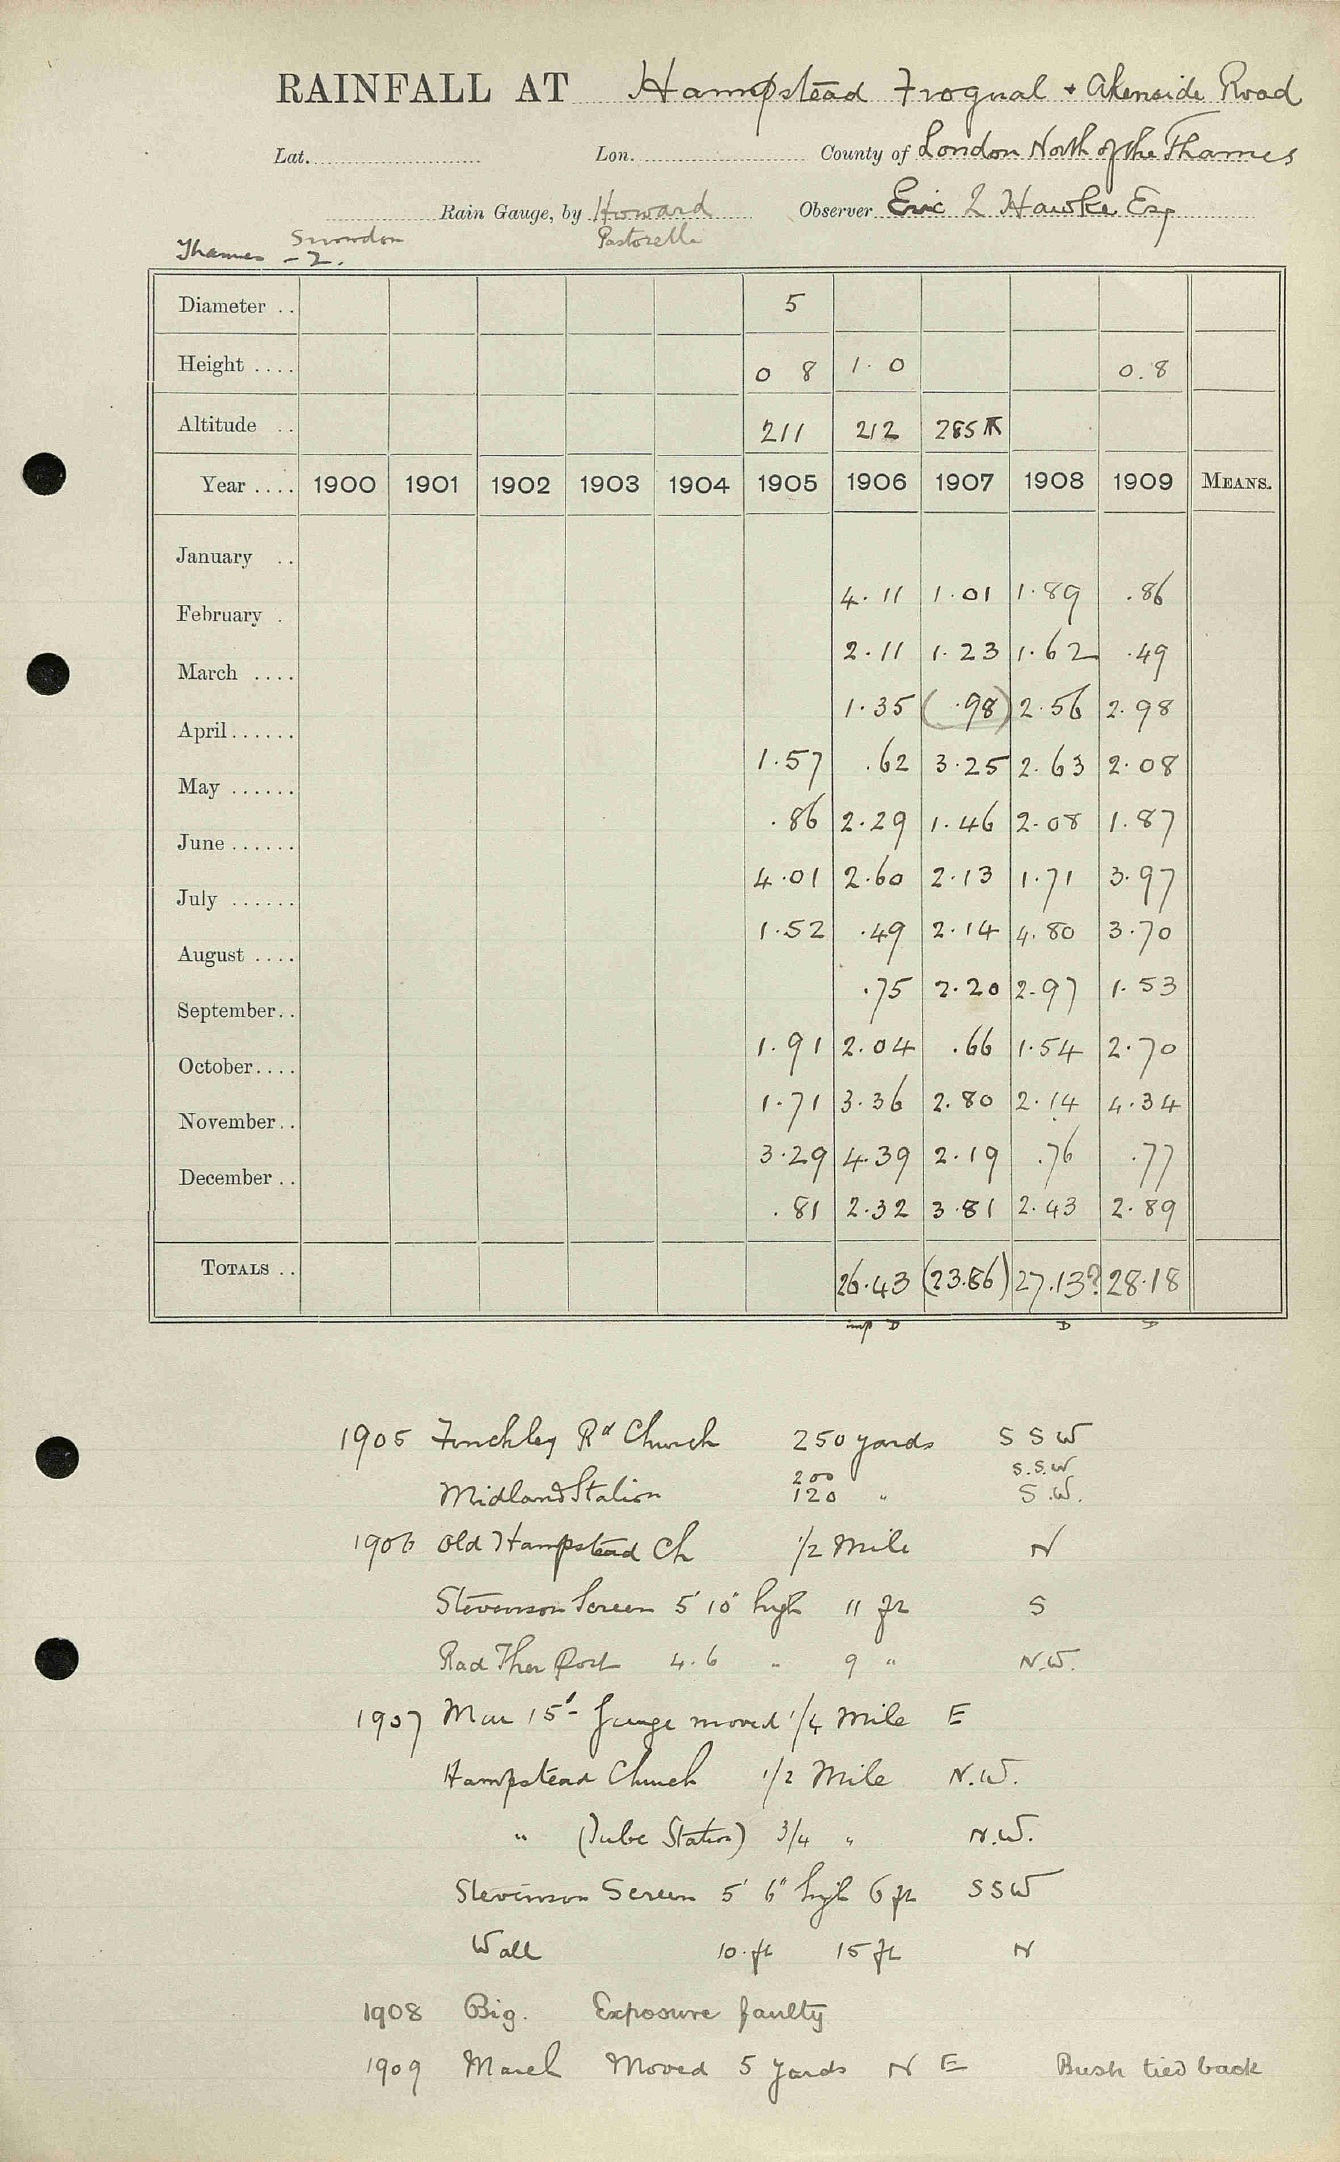 RAINFALL AT Hampstead Frognal + Akenside Road
Lat. Lon. County of London North of the Thames
Rain Gauge, by Howard Observer Eric L Hawke Esq
Snowdon Pastorelli
Thames - 2.
Diameter .. 5
Height .... 0 8 1.0 0.8
Altitude .. 211 212 285
Year .... 1900 1901 1902 1903 1904 1905 1906 1907 1908 1909 MEANS.
January .. 4.11 1.01 1.89 .86
February . 2.11 1.23 1.62 .49
March .... 1.35 (.98) 2.56 2.98
April...... 1.57 .62 3.25 2.63 2.08
May ...... .86 2.29 1.46 2.08 1.87
June ...... 4.01 2.60 2.13 1.71 3.97
July ...... 1.52 .49 2.14 4.80 3.70
August .... .75 2.20 2.97 1.53
September.. 1.91 2.04 .66 1.54 2.70
October.... 1.71 3.36 2.80 2.14 4.34
November.. 3.29 4.39 2.19 .76 .77
December .. .81 2.32 3.81 2.43 2.89
TOTALS .. 26.43 (23.86) 27.13? 28.18
imp D D D
1905 Finchley Rd Church 250 yards S S W
200 S.S.W
Midland Station 120 " S.W.
1906 Old Hampstead Ch 1/2 Mile N
Stevenson Screen 5' 10" high 11 ft S
Rad Ther Post 4.6 " 9 " N.W.
1907 Mar 15 Gauge moved 1/4 Mile E
Hampstead Church 1/2 Mile N.W.
" (Tube Station) 3/4 " N.W.
Stevenson Screen 5' 6" high 6 ft SSW
Wall 10 ft 15 ft N
1908 Big. Exposure faulty
1909 March Moved 5 yards N E Bush tied back